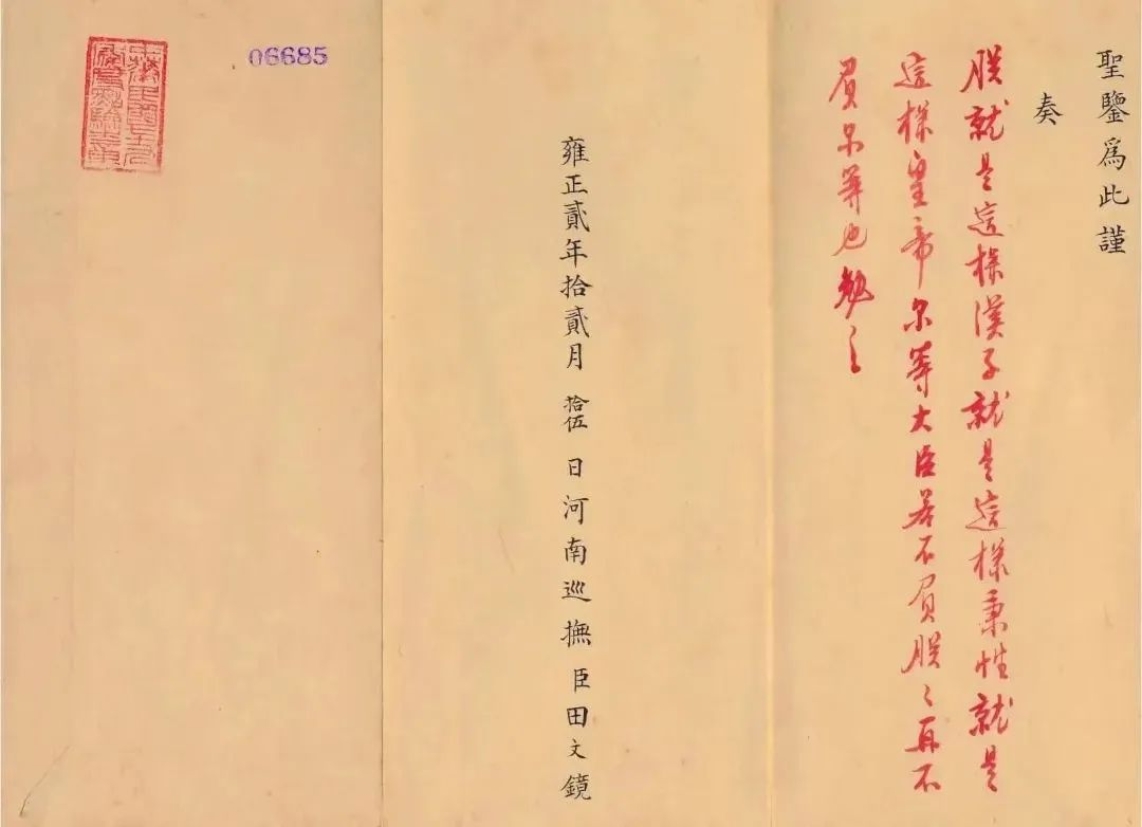 聖鑒爲此謹
奏
朕就是這樣漢子就是這樣秉性就是
這樣皇帝尔等大臣若不負朕〻再不
負尔等也勉之
雍正貳年拾貳月拾伍日河南巡撫臣田文鏡
06685